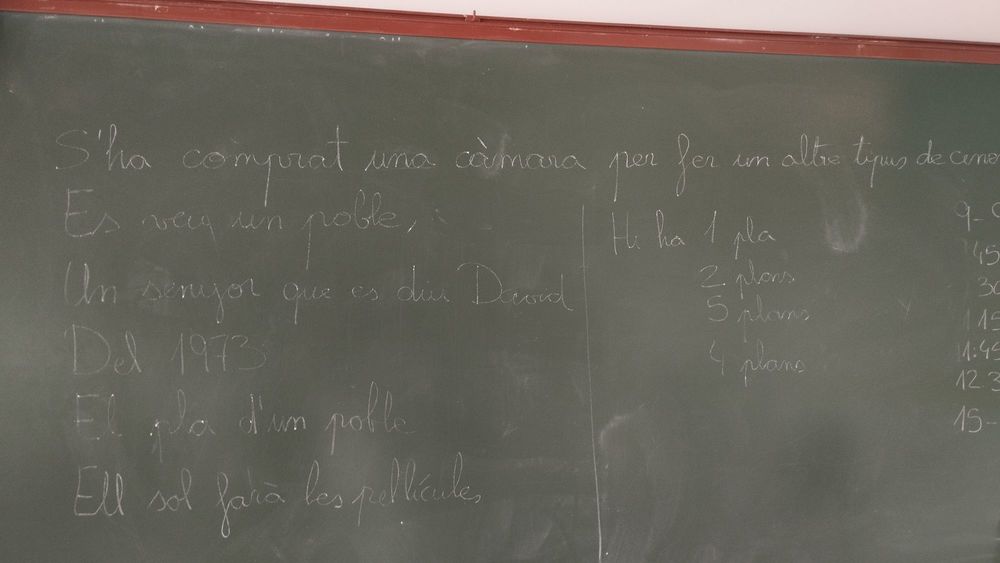 S'ha comprat una càmara per fer un altre tipus de
Es veu un poble,
Un senyor que es diu David
Del 1973
El pla d'un poble
Ell sol farà les pel·lícules
Hi ha 1 pla
2 plans
5 plans
4 plans
9-
45
30
1:45
15-